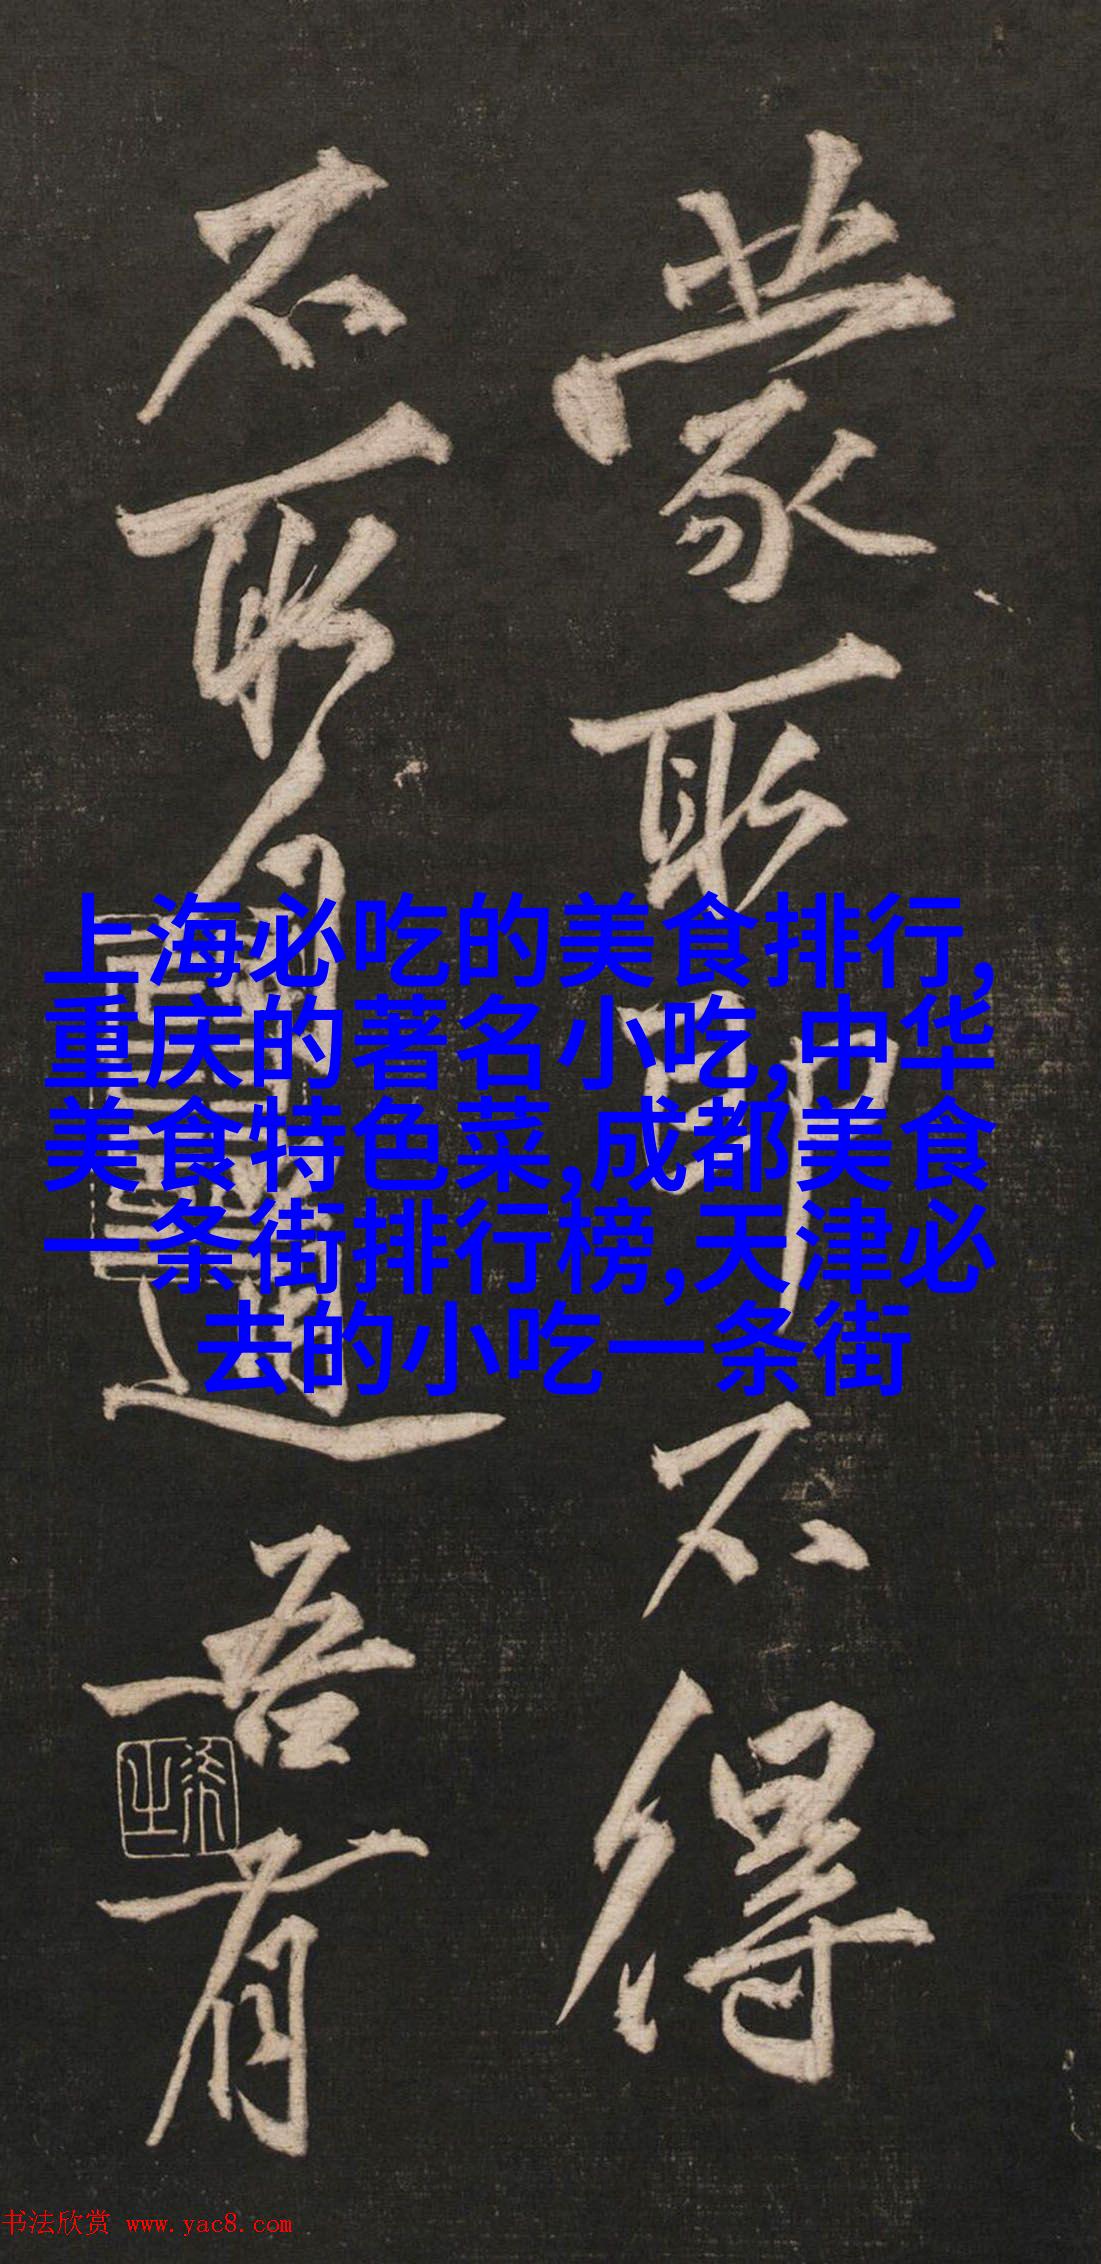 蒙所不得
不所
吾有
上海必吃的美食排行,
重庆的著名小吃,中华
美食特色菜,成都美食
一条街排行榜,天津必
去的小吃一条街
书法欣赏 www.yac8.com